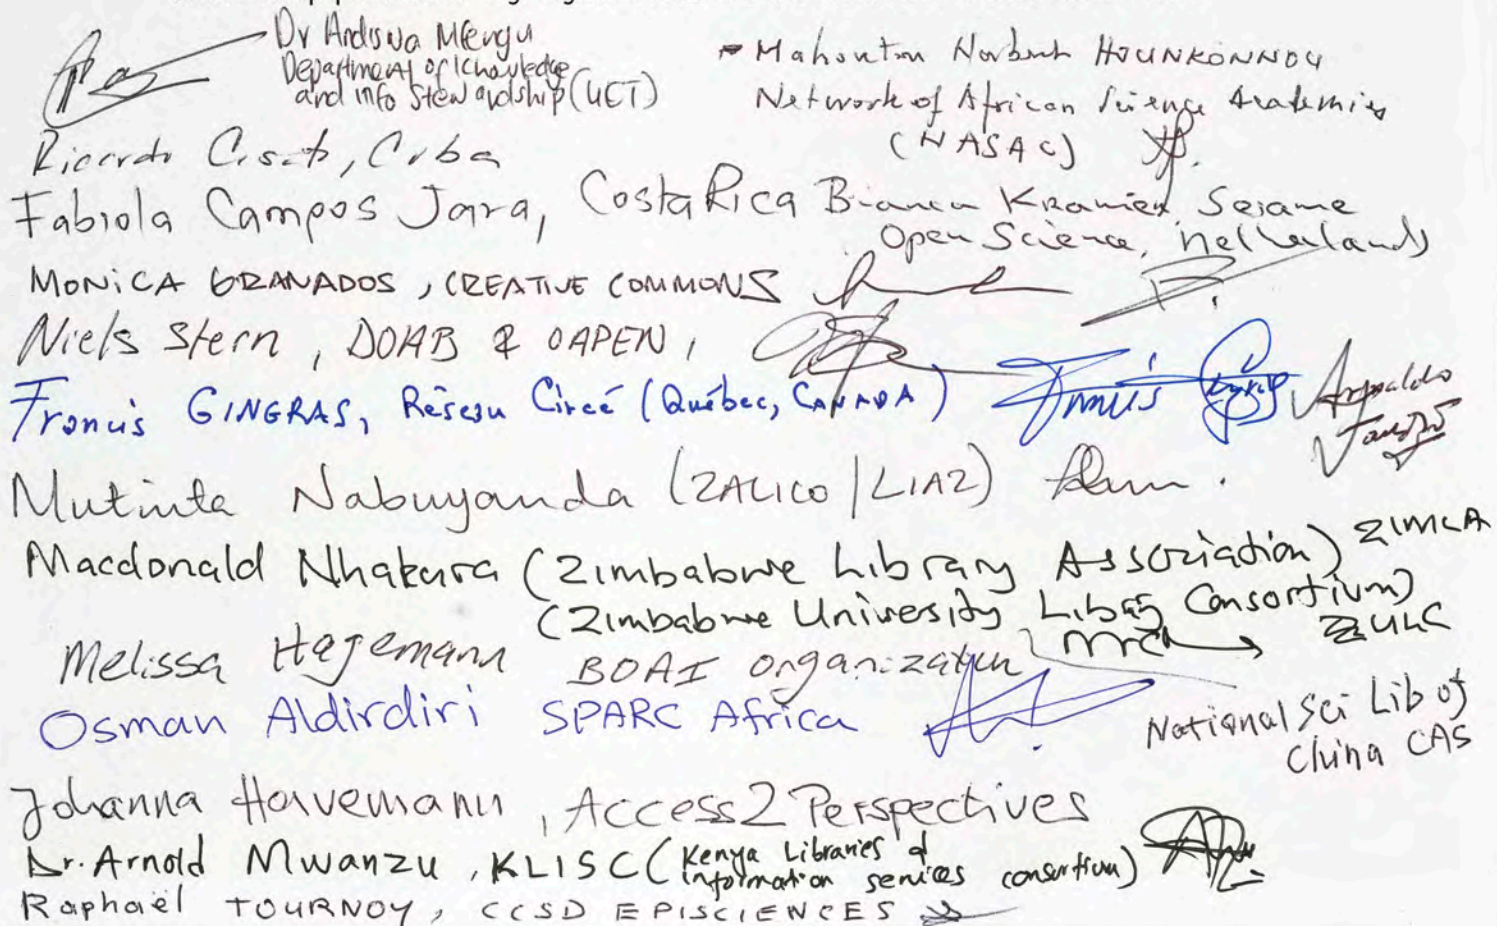 Dr Andiswa Mfengu
Department of Knowledge
and info Stewardship (UCT)
Mahouton Norbert HOUNKONNOU
Network of African Science Academies
(NASAC)
Ricardo Casate, Cuba
Fabiola Campos Jara, Costa Rica
Bianca Kramer, Sesame
Open Science, Netherlands
MONICA GRANADOS, CREATIVE COMMONS
Niels Stern, DOAB & OAPEN,
Francis GINGRAS, Réseau Circé (Québec, CANADA)
Mutinta Nabuyanda (ZALICO/LIAZ)
Macdonald Nhakura (Zimbabwe Library Association) ZIMLA
(Zimbabwe University Library Consortium)
ZULC
Melissa Hagemann BOAI organization
Osman Aldirdiri SPARC Africa
National Sci Lib of
China CAS
Johanna Havemann, Access2Perspectives
Dr. Arnold Mwanzu, KLISC (Kenya Libraries &
information services consortium)
Raphaël TOURNOY, CCSD EPISCIENCES